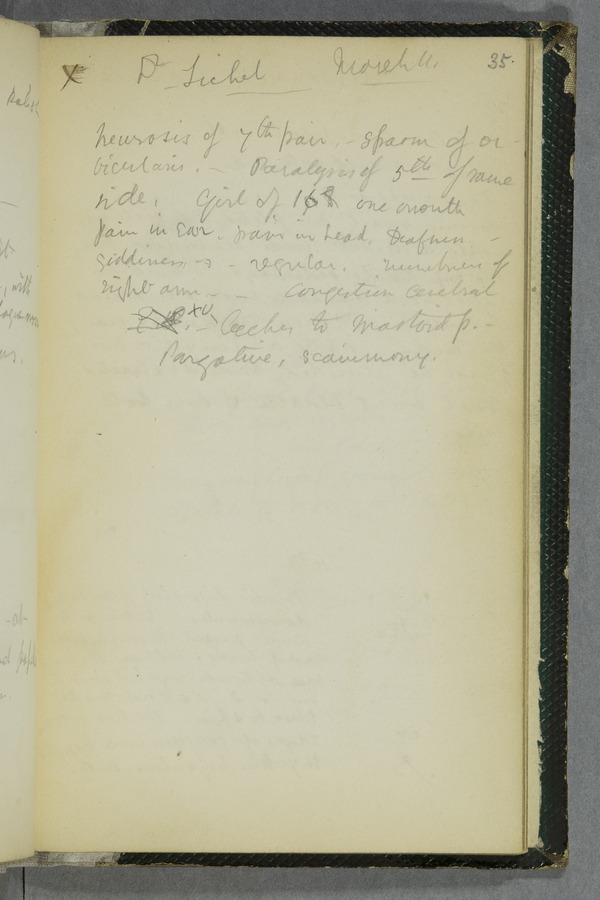 x Dr Sichel March 11. 35.
Neurosis of 7th pair. - Spasm of or-
bicularis. - Paralysis of 5th of same
side. Girl of 16 one month
Pain in Ear. pain in head. Deafness -
giddiness - regular. numbness of
right arm - - Congestion Cerebral
xv - leeches to mastoid p. -
Purgative, scammony.